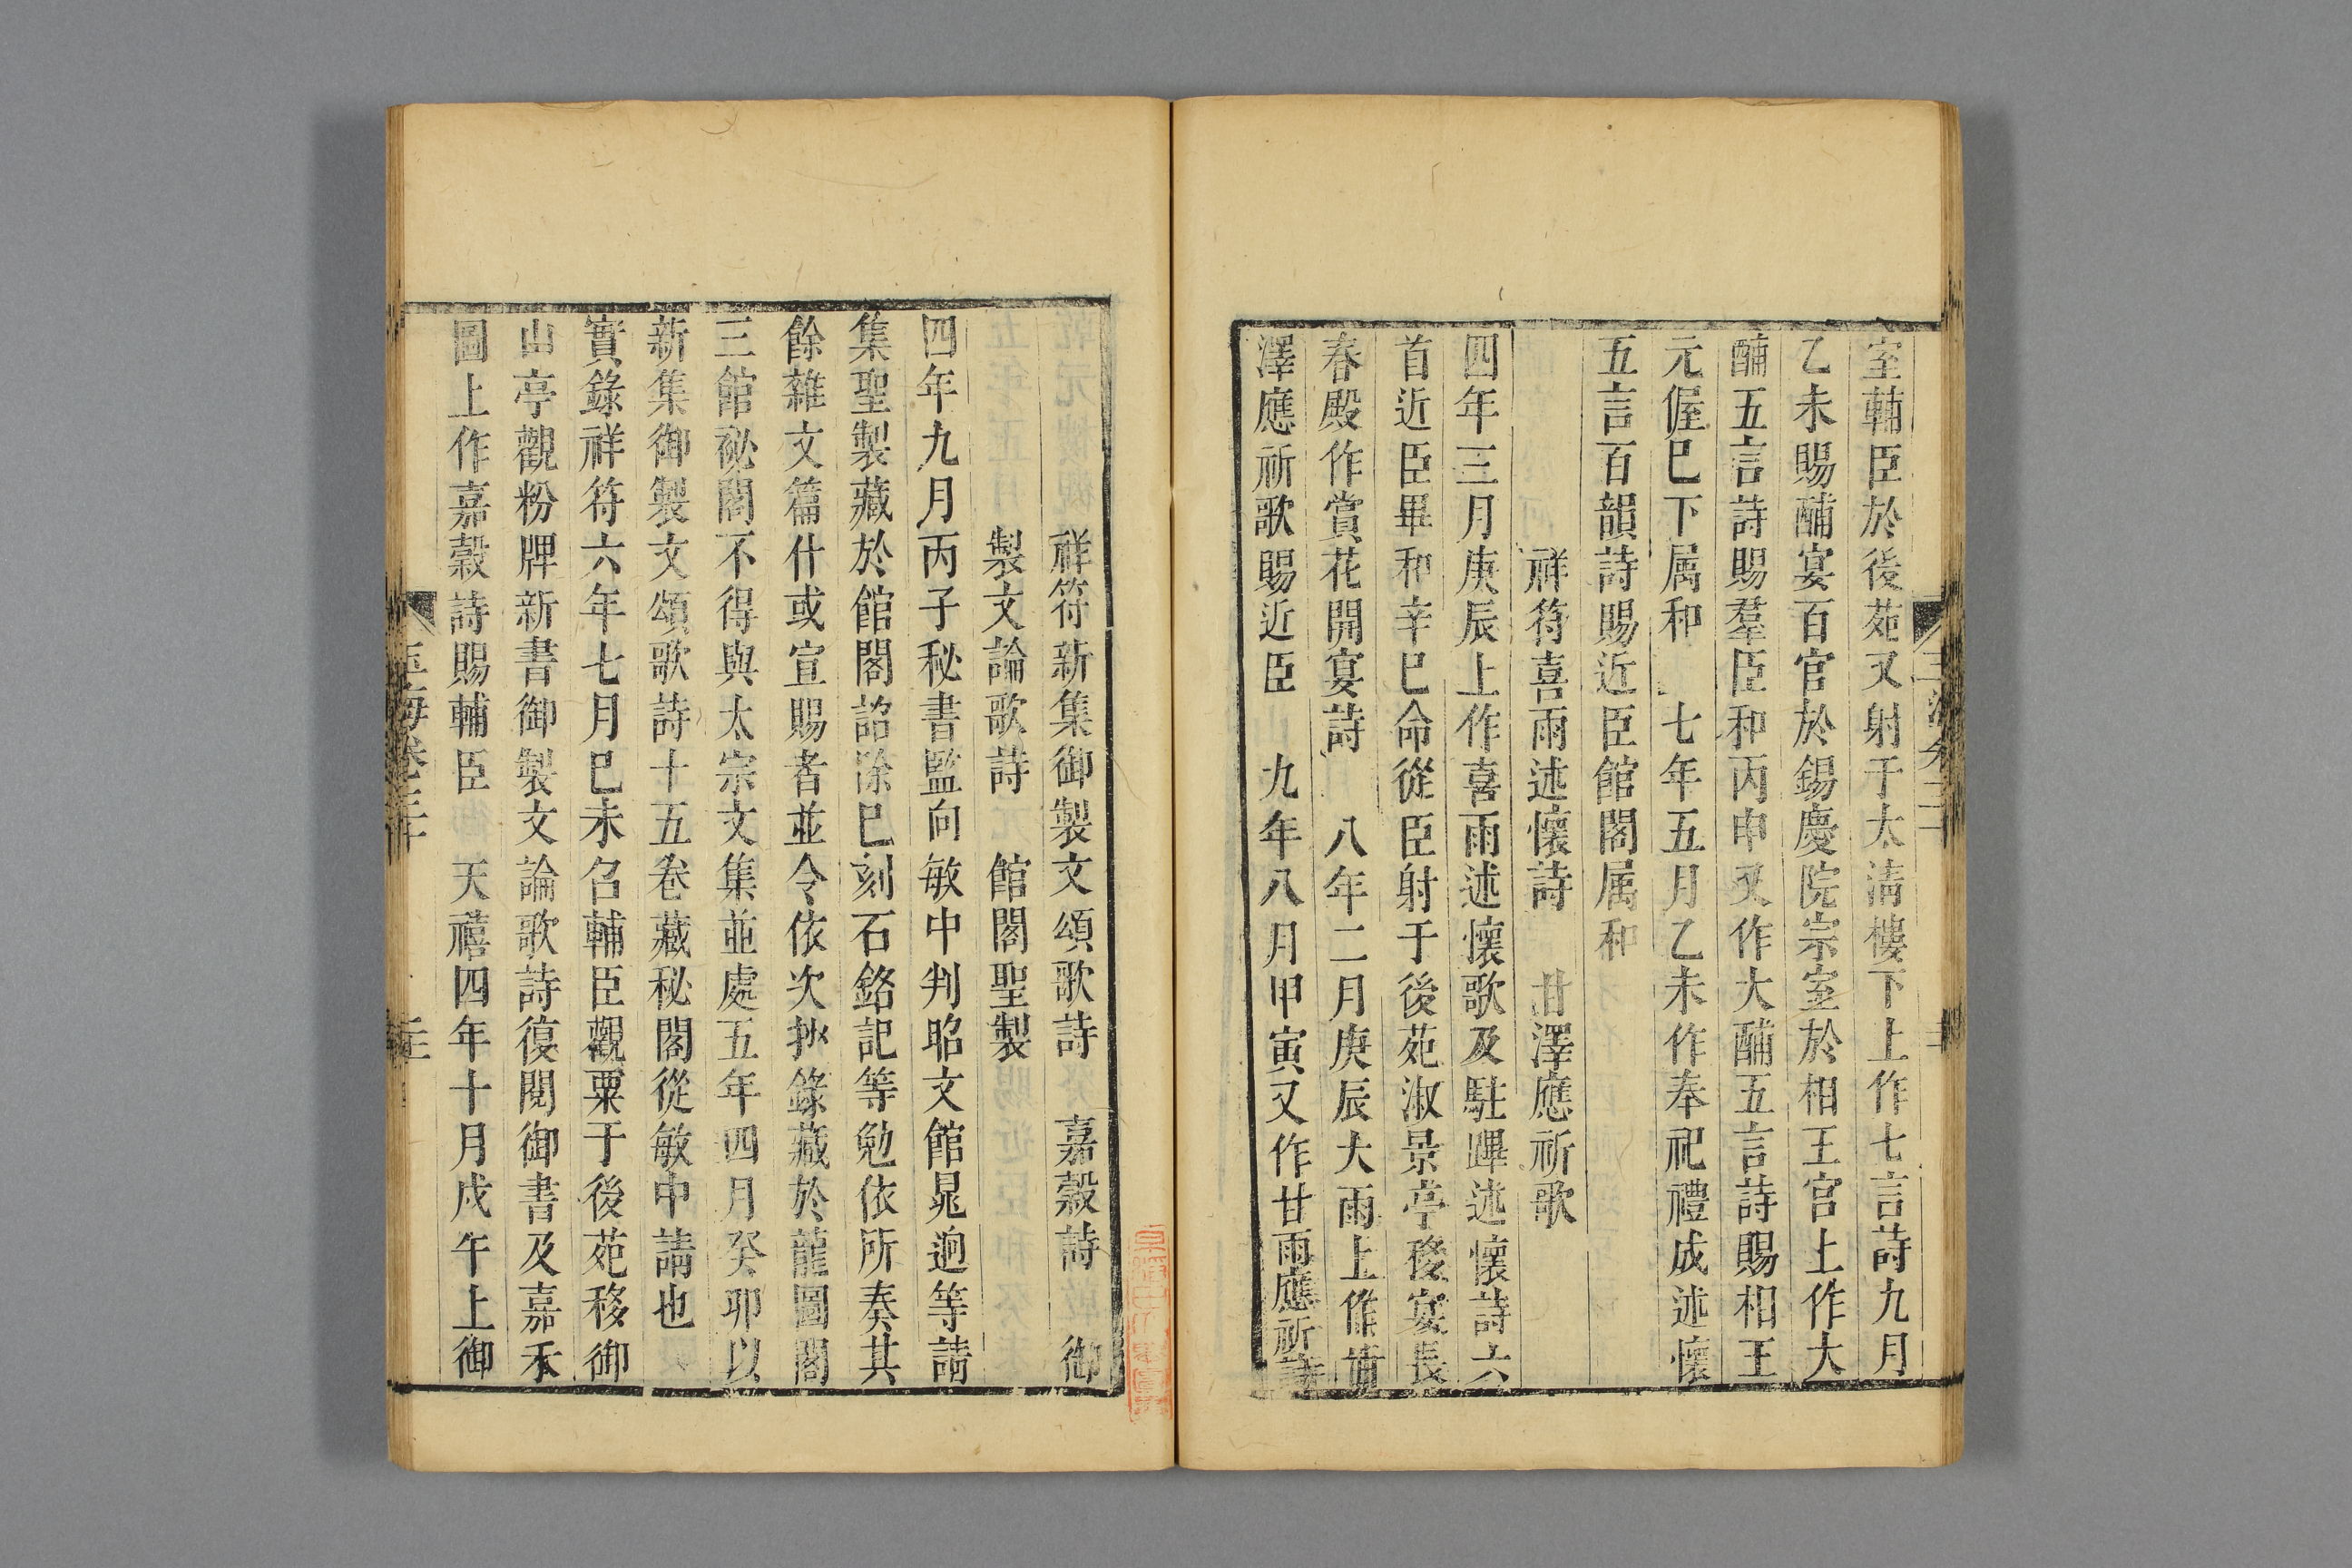 室輔臣於後苑又射于太淸樓下上作七言詩九月
乙未賜酺宴百官於錫慶院宗室於相王宮上作大
酺五言詩賜羣臣和丙申又作大酺五言詩賜相王
元偓巳下属和 七年五月乙未作奉祀禮成述懷
五言百韻詩賜近臣館閣属和
祥符喜雨述懷詩 甘澤應祈歌
四年三月庚辰上作喜雨述懷歌及駐蹕述懷詩六
首近臣畢和辛巳命從臣射于後苑淑景亭移宴長
春殿作賞花開宴詩 八年二月庚辰大雨上作甘
澤應祈歌賜近臣 九年八月甲寅又作甘雨應祈詩
祥符新集御製文頌歌詩 嘉穀詩 御
製文論歌詩 館閣聖製
四年九月丙子秘書監向敏中判昭文館晁逈等請
集聖製藏於館閣詔除巳刻石銘記等勉依所奏其
餘雜文篇什或宣賜者並令依次抄錄藏於龍圖閣
三館祕閣不得與太宗文集並處五年四月癸卯以
新集御製文頌歌詩十五卷藏秘閣從敏中請也
實錄祥符六年七月巳未召輔臣觀粟于後苑移御
山亭觀粉牌新書御製文論歌詩復閱御書及嘉禾
圖上作嘉穀詩賜輔臣 天禧四年十月戊午上御
玉海卷三十